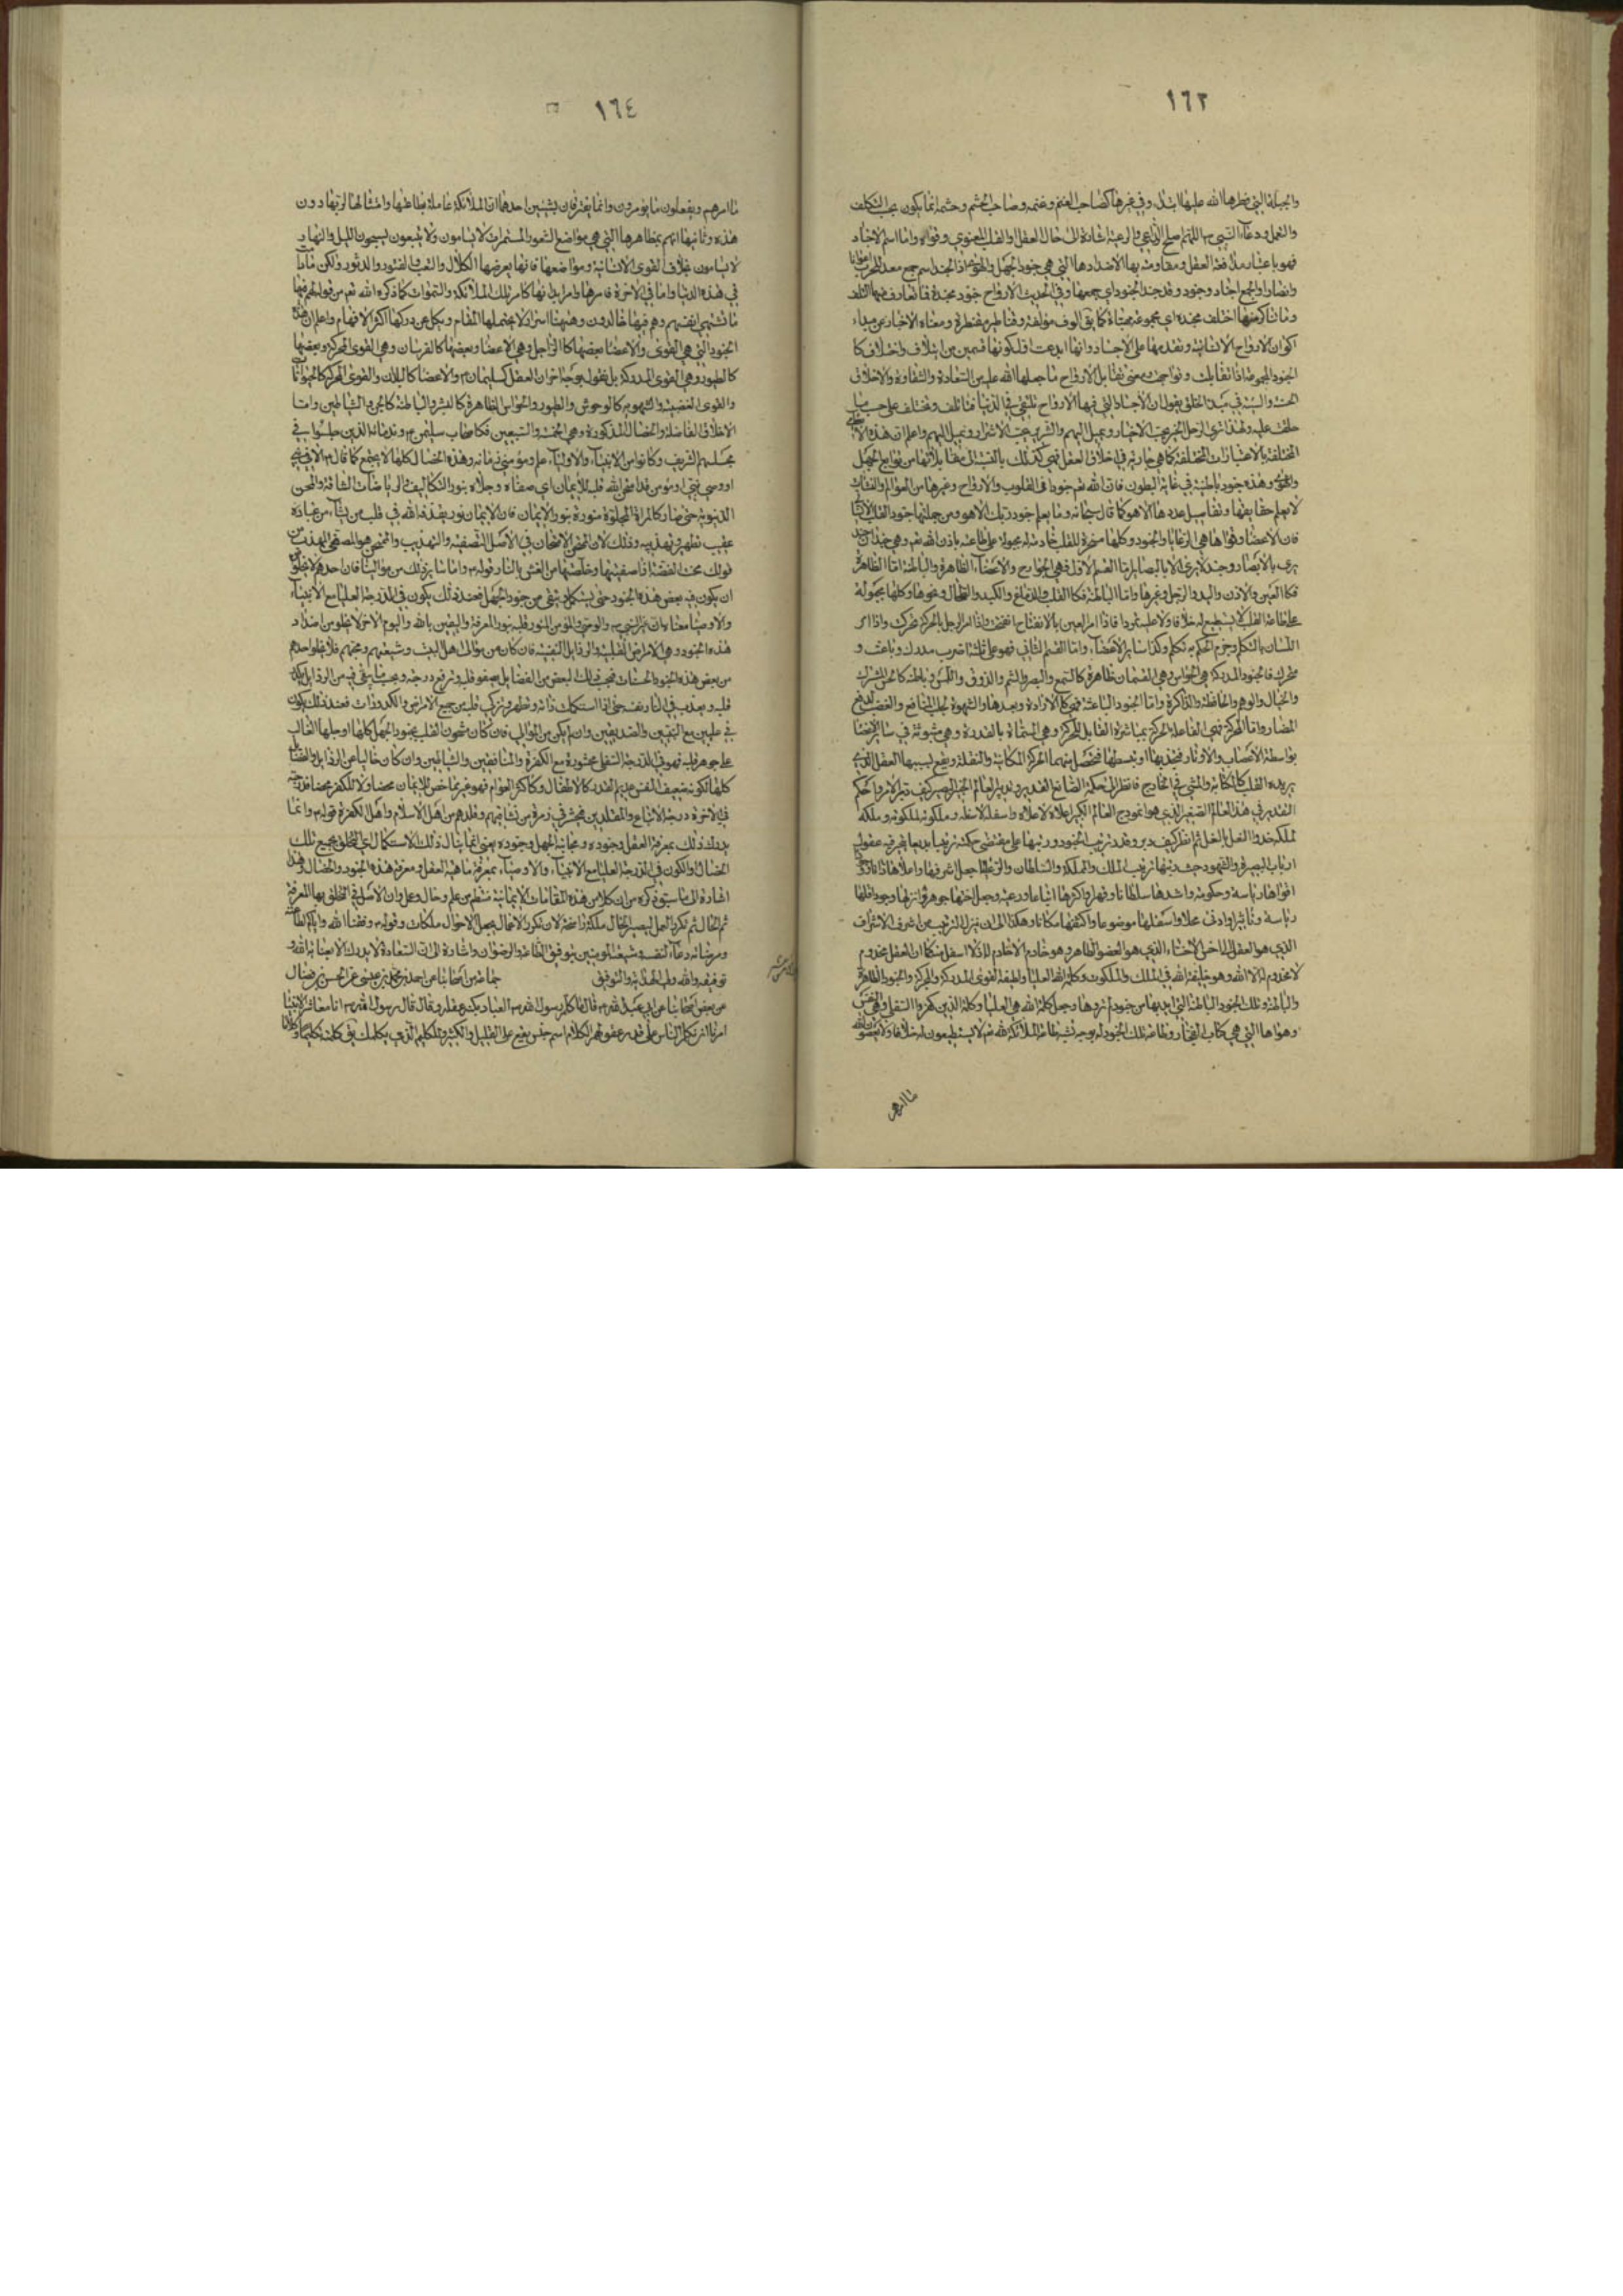 ١٦٣
والجبلة التي فطرها الله عليها ابتداء وفي غيرها كصاحب الغنم وغنمه وصاحب الحشم وحشمه انما يكون بحسب التكلف
والتعمل ودعاء النبي اللهم صلح الراعي والرعية اشارة الى حال العقل او القلب المعنوي وقواه واما اسم الاجناد
فهو باعتبار مدافعة العقل ومقاومته بها الاضدادها التي هي جنود الجهل والهوى اذ الجند اسم جمع معد للحرب
وانصارا والجمع اجناد وجنود وقد جند الجنود اي جمعها وفي الحديث الارواح جنود مجندة فما تعارف منها ائتلف
وما تناكر منها اختلف مجندة اي مجموعة مهيأة كما يق الوف مؤلفة وقناطير مقنطرة ومعناه الاخبار عن مبداء
اكوان الارواح الانسانية وتقدمها على الاجساد وانها ابدعت اول كونها قسمين من ائتلاف واختلاف كا
الجنود المجموعة اذا تقابلت وتواجهت ومعنى تقابل الارواح ما جعلها الله عليه من السعادة والشقاوة والاخلاق
الحسنة والسيئة في مبدء الخلق يقول ان الاجساد التي فيها الارواح تلتقي في الدنيا فتأتلف وتختلف على حسب ما
خلقت عليه ولهذا ترى الرجل الخير يحب الاخيار ويميل اليهم والشرير يحب الاشرار ويميل اليهم واعلم ان هذه
المختلفة بالاعتبارات المختلفة كما هي جارية في اخلاق العقل فهي كذلك بالنسبة الى مقابلاتها من توابع الجهل
وهذه جنود باطنية في غاية البطون فان الله تعم جنودا في القلوب والارواح وغيرها من العوالم والنشآت
لا يعلم حقايقها وتفاصيل عددها الا هو كما قال سبحانه وما يعلم جنود ربك الا هو ومن جملتها جنود القلب
فان الاعضاء وقواها هي الرعايا والجنود وكلها مسخرة للقلب خادمة له مجبولة على طاعته باذن الله تعم وهي جندان جند
يرى بالابصار وجند لا يرى الا بالبصاير اما القسم الاول فهي الجوارح والاعضاء الظاهرة والباطنة اما الظاهرة
فكالعين والاذن واليد والرجل وغيرها واما الباطنة فكالقلب والدماغ والكبد والطحال ونحوها وكلها مجبولة
على طاعة القلب لا يستطيع له خلافا ولا عليه تمردا فاذا امر العين بالانفتاح انفتحت واذا امر الرجل بالحركة تحركت واذا امر
اللسان بالتكلم وجزم الحكم به تكلم وكذا ساير الاعضاء واما القسم الثاني فهو على ثلثة اضرب مدرك وباعث و
محرك فالجنود المدركة هي الحواس وهي قسمان ظاهرة كالسمع والبصر والشم والذوق واللمس وباطنة كالحس المشترك
والخيال والوهم والحافظة والذاكرة واما الجنود الباعثة فهي كالارادة وبعدها والشهوة لجلب المنافع والغضب لدفع
المضار واما المحركة فهي الفاعلة للحركة بمباشرة القابل للحركة وهي المسماة بالقدرة وهي مبثوثة في ساير الاعضا
بواسطة الاعصاب والاوتار فيجذبها او يبسطها فتحصل منهما الحركة المكانية والنقلة ويقع بسببها العقل الذي
يريده القلب كالكتابة والمشي في الخارج فانظر الى حكمة الصانع القدير وتدبير العالم الخبير البصير كيف
القدير في هذا العالم الصغير الذي هو انموذج العالم الكبير اعلاه لاعلاه واسفله لاسفله وملكوته لملكوته وملكه
لملكه حذو النعل بالنعل ثم انظر كيف دبر وقدر ترتيب الجنود ورتبها على مقتضى حكمته ترتيبا بديعا يعرفه عقول
ارباب البصيرة والشهود حيث رتبها ترتيب الملك والمملكة والسلطان والرعية جعل اشرفها واعلاها ذاتا
اقواها رياسة وحكومة واشدها سلطانا وقهرا واكثرها اتباعا ورعية وجعل اخسها جوهرا وانزلها وجودا اقلها
رياسة وتاثيرا وادنى علاوا سفلها موضوعا واكثفها مكانا وهكذا الى ان ينزل الترتيب من اشرف الاشراف
الذي هو العقل الى اخس الاخساء الذي هو العضو الظاهر وهو خادم لا خادم له لانه اسفل منه كما ان العقل مخدوم
لا مخدوم له الا الله وهو خليفة الله في الملك والملكوت وكلمة الله العليا واطيعه القوى المدركة والمحركة والجنود الظاهرة
والباطنة وتلك الجنود الباطنة التي ايد بها من جنود لم تروها وجعل كلمة الله هي العليا وكلمة الذين كفروا السفلى وهي
وهواها التي هي كتاب الفجار وطاعة تلك الجنود له بوجه تشبه طاعة الملائكة لله تعم لا يستطيعون له خلافا ولا يعصون
ما امرهم
١٦٤
ما امرهم ويفعلون ما يؤمرون وانما يفترقان بشيئين احدهما ان الملائكة عاملة بطاعتها وامتثالها لربها دون
هذه وثانيها انهم بمظاهرها التي هي مواضع الشعور المستمرات لا ينامون ولا يتعبون يسبحون الليل والنهار
لا يسامون بخلاف القوى الانسانية ومواضعها فانها يعرضها الكلال والتعب والفتور والدثور ولكن
في هذه الدنيا واما في الاخرة فامرها وامر ابدانها كامر تلك الملائكة والسموات كما ذكره الله تعم من قوله لهم فيها
ما تشتهي انفسهم وهم فيها خالدون وههنا اسرار لا يحتملها المقام ويكل عن دركها اكثر الافهام واعلم ان هذه
الجنود التي هي القوى والاعضا بعضها كالراجل وهي الاعضا وبعضها كالفرسان وهي القوى المحركة وبعضها
كالطيور وهي القوى المدركة بل نقول بوجه اخر ان العقل كسليمان والاعضا كالبلاد والقوى المحركة كالحيوانات
والقوى الغضبية والشهوية كالوحوش والطيور والحواس الظاهرة كالبشر والباطنة كالجن والشياطين واما
الاخلاق الفاضلة والخصال المذكورة وهي الخمسة والسبعين فكاصحاب سليمن وندمائه الذين جلسوا في
مجلسهم الشريف وكانوا من الانبياء والاولياء علم ومؤمني زمانه وهذه الخصال كلها لا يجتمع كما قال الا في نبي
او وصي نبي او مؤمن قد امتحن الله قلبه للايمان اي صفاه وجلاه بنور التكاليف والرياضات الشاقة والمحن
الدنيوية حتى صار كالمرآة المجلوة منورة بنور الايمان فان الايمان نور يقذفه الله في قلب من يشاء من عباده
عقيب تطهيره وتهذيبه وذلك لان المحن والامتحان في الاصل التصفية والتهذيب والممتحن هو المصفى المهذب من
قولك محنت الفضة اذا صفيتها وخلصتها من الغش بالنار قوله واما ساير ذلك من موالينا فان احدهم لا يخلو
ان يكون فيه بعض هذه الجنود حتى يستكمل وينقى من جنود الجهل فعند ذلك يكون في الدرجة العليا مع الانبياء
والاوصيا معناه ان غير النبي والوصي والمؤمن المنور قلبه بنور المعرفة واليقين بالله واليوم الاخر لا يخلو من اضداد
هذه الجنود وهي الامراض القلبية والرذايل النفسية فان كان من موالى اهل البيت وشيعتهم ومحبهم فلا يخلو احدهم
من بعض هذه الجنود الحسنات فبحسب ذلك البعض من الفضايل يصفو قلبه وترفع درجته وبحسب ما بقي فيه من الرذايل
قلبه ويعذب في النار نفسه حتى اذا استكملت ذاته وتطهر وتزكى قلبه من جميع الامراض والكدورات فعند ذلك يكون
في عليين مع النبيين والصديقين وان لم يكن من الموالي فان كان مشحون القلب بجنود الجهل كلها او جلها الغالب
على جوهر قلبه فهو في الدرجة السفلى محشورة مع الكفرة والمنافقين والشياطين وان كان خاليا عن الرذايل والفضايل
كلها لكونه ضعيف النفس عديم القدر كالاطفال وكاكثر العوام فهو غير ماحض للايمان محضا ولا للكفر محضا فله
في الاخرة درجة الاتباع والمقلدين محشر في زمرة من تشابههم وقلدهم من اهل الاسلام واهل الكفرة قوله وانما
يدرك ذلك بمعرفة العقل وجنوده ومجانبة الجهل وجنوده يعني انما ينال ذلك الاستكمال اي التخلق بجميع تلك
الخصال والكون في الدرجة العليا مع الانبياء والاوصياء بمعرفة ماهية العقل ومعرفة هذه الجنود والخصال وهذا
اشارة الى ما سبق ذكره من ان كلا من هذه المقامات الايمانية تنتظم من علم وحال وعمل وان الاصل في التخلق بها المعرفة
ثم الحال ثم تكرر العمل ليصير الحال ملكة راسخة لان تكرر الاعمال يجعل الاحوال ملكات وقوله وفقنا الله واياكم لطاعته
ومرضاته دعاء لنفسه وشيعته المؤمنين بتوفيق الطاعة والرضوان واشارة الى ان السعادة لا يدرك الا بعناية الله و
توفيقه والله ولي الهداية والتوفيق جماعة من اصحابنا عن احمد بن محمد بن عيسى عن الحسن بن فضال
عن بعض اصحابنا عن ابي عبد الله قال ما كلم رسول الله العباد بكنه عقله وقال قال رسول الله انا معاشر الانبيا
امرنا ان نكلم الناس على قدر عقولهم الكلام اسم جنس يقع على القليل والكثير والكليم الذي يكلمك يق كلمته تكليما و